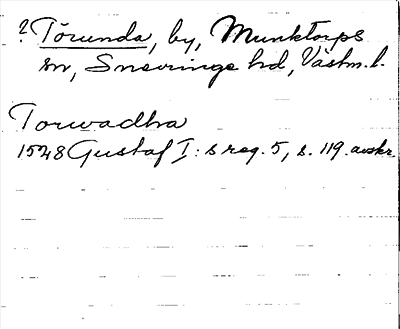 ? Törunda, by, Munktorps
sn, Snevringe hd, Västm. l.
Torwadha
1528 Gustaf I: s reg. 5, s. 119. avskr.